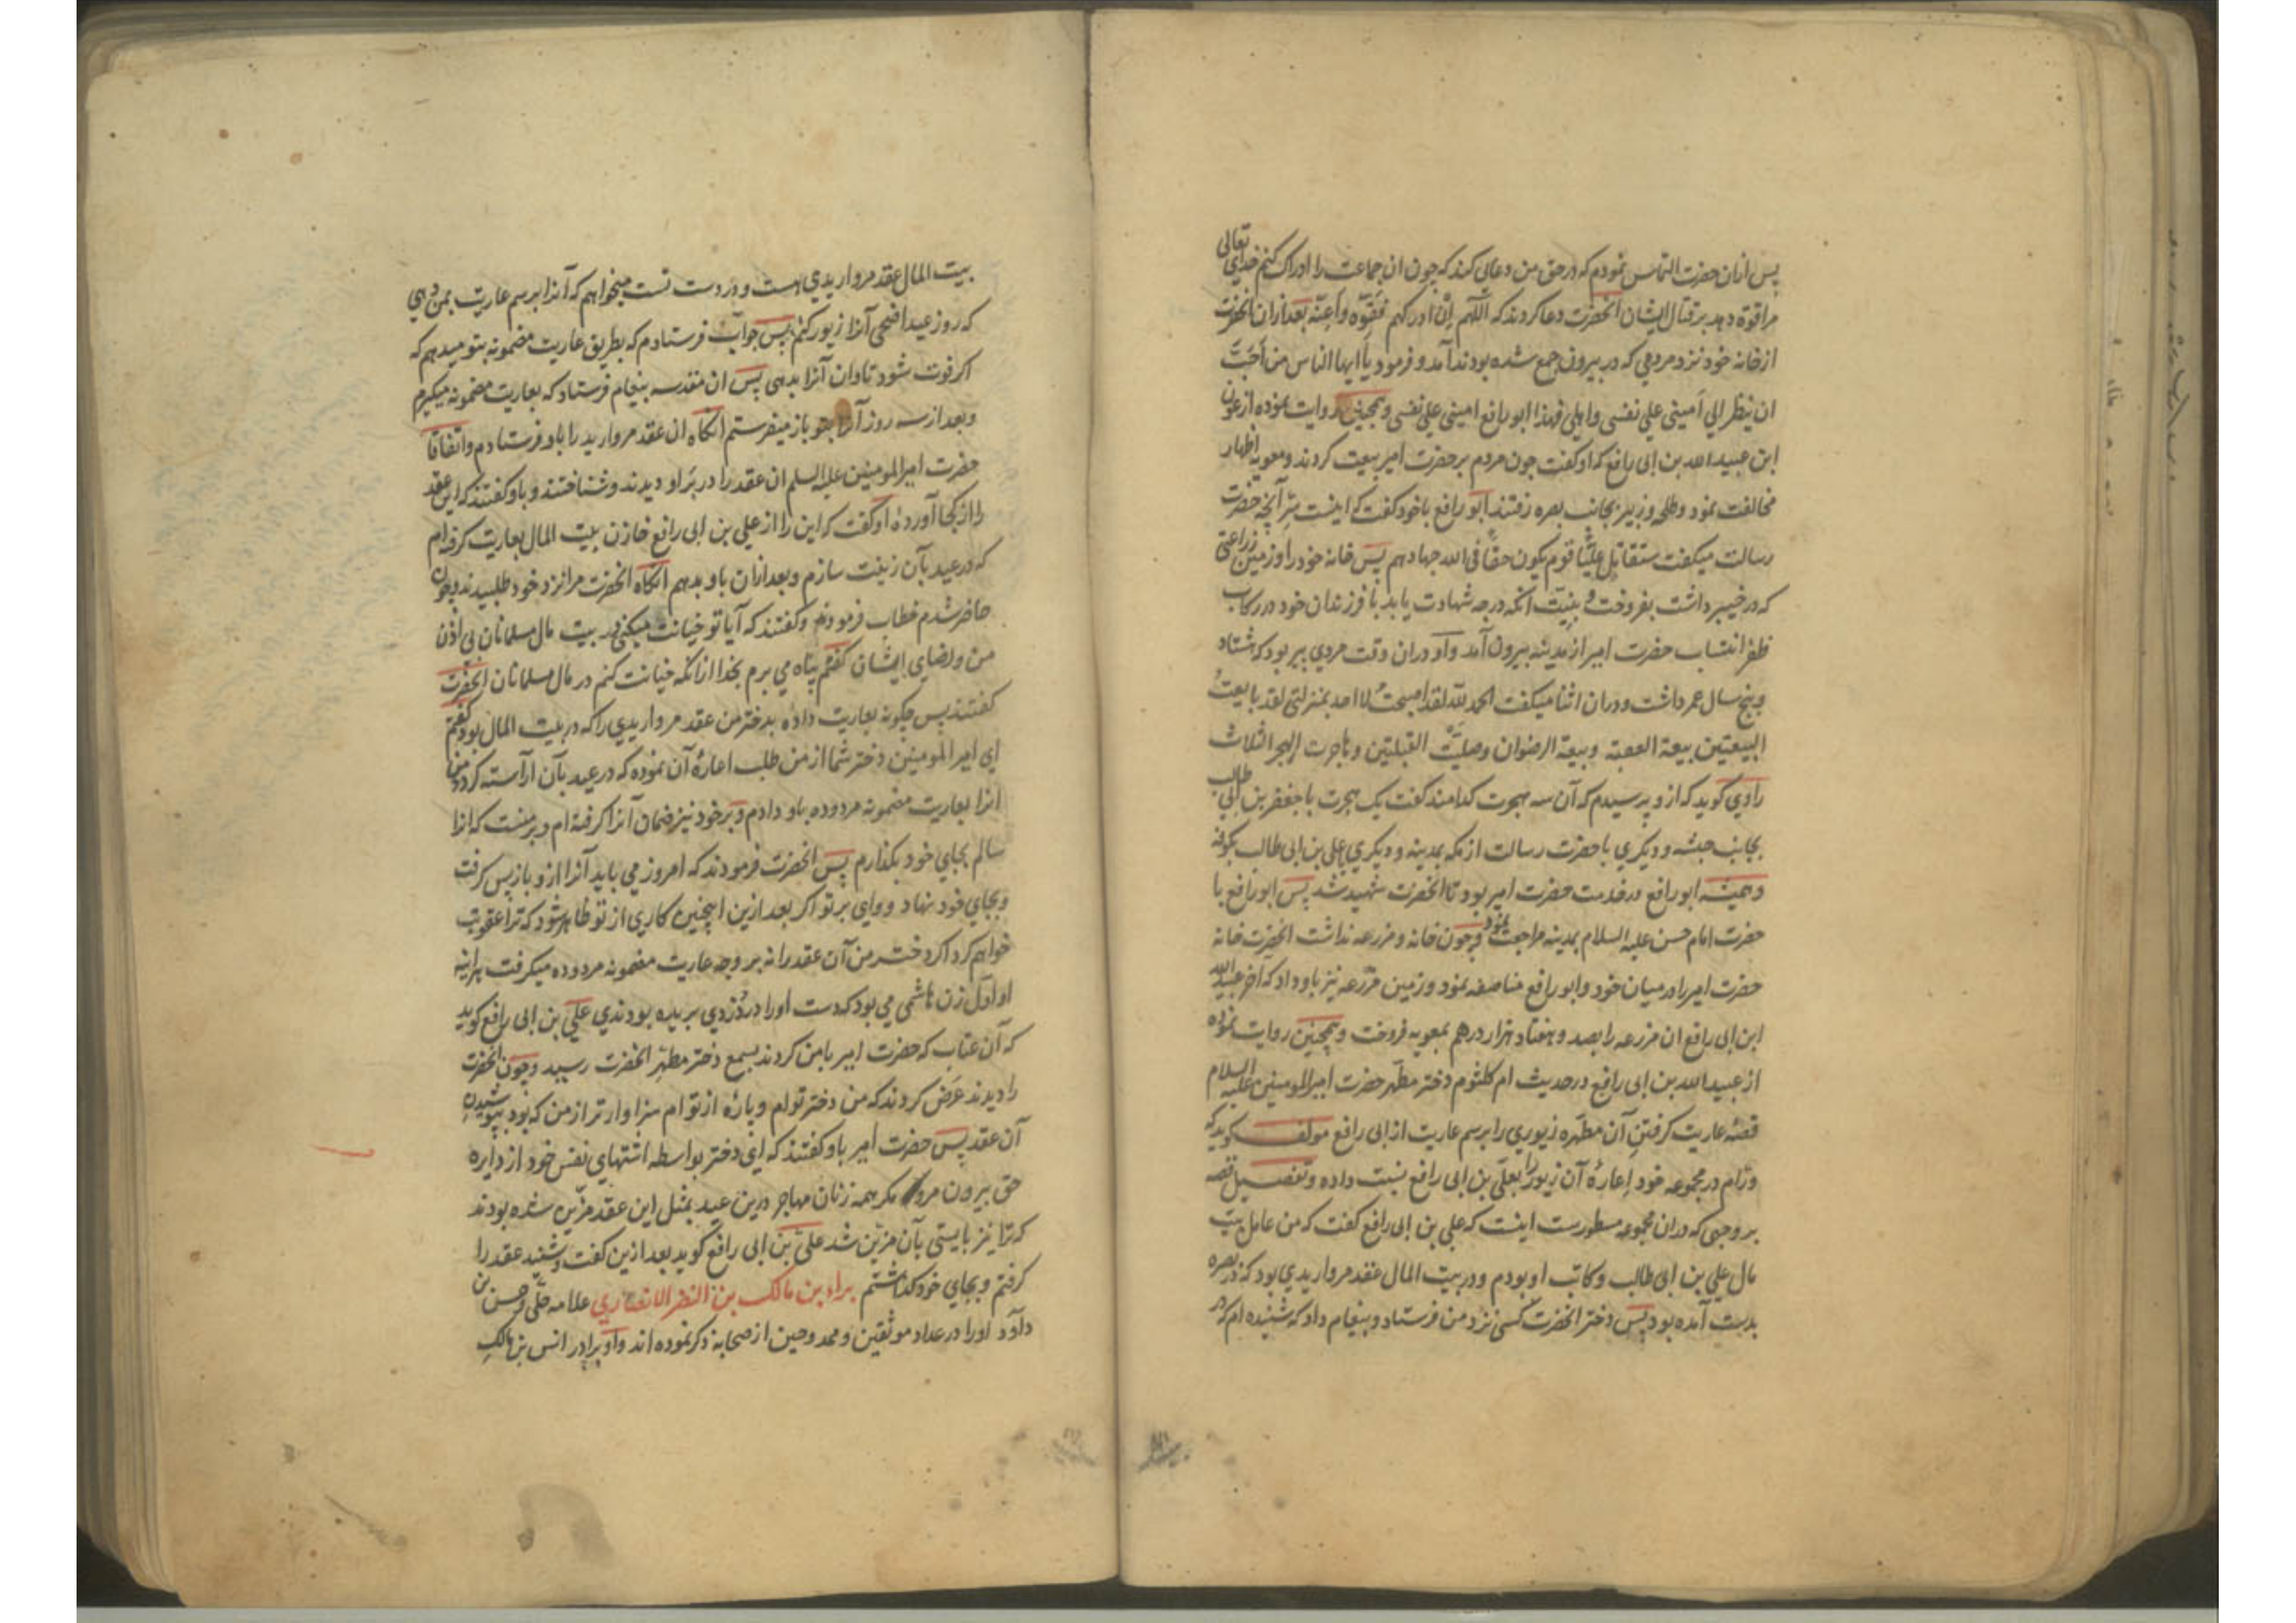 پس ازان حضرت التماس نمودم که در حق من دعایی کنند که چون ان جماعت را ادراک کنم خدای تعالی
مرا قوة دهد بر قتال ایشان انحضرت دعا کردند که اللّهم إنْ ادرکهم فَقَوِّه واَعِنْه بعد ازان انحضرت
از خانه خود نزد مردمی که در بیرون جمع شده بودند آمد و فرمود یا ایها الناس من اَحَبَّ
ان ینظر الی اَمینی علی نفسی و اهلی فهذا ابو رافع امینی علی نفسی و همچنین روایت نموده از عون
ابن عبید الله بن ابی رافع که او کفت چون مردم بر حضرت امیر بیعت کردند و معویه اظهار
مخالفت نمود و طلحه و زبیر بجانب بصره رفتند ابو رافع با خود کفت که اینست سِرّ آنچه حضرت
رسالت میکفت ستقاتل علیًّا قوم یکون حقّا فی الله جهادهم پس خانه خود را و زمین زراعتی
که در خیبر داشت بفروخت و بنیّت انکه درجه شهادت یابد با فرزندان خود در رکاب
ظفر انتساب حضرت امیر از مدینه بیرون آمد و او دران وقت مردی پیر بود که هشتاد
و پنج سال عمر داشت و دران اثنا میکفت الحمد للّه لقد اصبحتُ لا احد بمنزلتی لقد بایعتُ
البیعتین بیعة العقبة و بیعة الرضوان وصلیّتُ القبلتین و هاجرت الهجر الثلاث
راوی کوید که ازو پرسیدم که آن سه هجرت کدامند کفت یک هجرت با جعفر بن ابی طالب
بجانب حبشه و دیکری با حضرت رسالت از مکه بمدینه و دیکری با علی بن ابی طالب بکوفه
و همیشه ابو رافع در خدمت حضرت امیر بود تا انحضرت شهید شد پس ابو رافع با
حضرت امام حسن علیه السلام بمدینه مراجعت نمود و چون خانه و مزرعه نداشت انحضرت خانه
حضرت امیر را در میان خود و ابو رافع مناصفه نمود و زمین مزرعه نیز باو داد که اخر عبید الله
ابن ابی رافع ان مزرعه را بصد و هفتاد هزار درهم بمعویه فروخت و همچنین روایت نموده
از عبید الله بن ابی رافع در حدیث ام کلثوم دختر مطهّر حضرت امیر المومنین علیه السلام
قصّه عاریت کرفتن آن مطهّره زیوری را برسم عاریت از ابی رافع مولف کوید که
ورّام در مجموعه خود إعارهٔ آن زیور را بعلی بن ابی رافع نسبت داده و تفصیل قصه
بر وجهی که دران مجموعه مسطورست اینست که علی بن ابی رافع کفت که من عامل بیت
مال علی بن ابی طالب و کاتب او بودم و در بیت المال عقد مرواریدی بود که در بصره
بدست آمده بود پس دختر انحضرت کسی نزد من فرستاد و پیغام داد که شنیده ام که در
بیت المال عقد مرواریدی هست و در دست تست میخواهم که آنرا برسم عاریت بمن دهی
که روز عید اضحی آنرا زیور کنم پس جواب فرستادم که بطریق عاریت مضمونه بتو میدهم که
اکر فوت شود تاوان آنرا بدهی پس ان مقدسه پیغام فرستاد که بعاریت مضمونه میکیرم
و بعد از سه روز آنرا بتو باز میفرستم انکاه ان عقد مروارید را باو فرستادم و اتفاقا
حضرت امیر المومنین علیه السلم ان عقد را در بَر او دیدند و شناختند و باو کفتند که این عقد
را از کجا آوردهٔ او کفت که این را از علی بن ابی رافع خازن بیت المال بعاریت کرفته ام
که در عید بآن زینت سازم و بعد ازان باو بدهم انکاه انحضرت مرا نزد خود طلبیدند و چون
حاضر شدم خطاب فرمودند و کفتند که آیا تو خیانت میکنی در بیت مال مسلمانان بی اذن
من و رضای ایشان کفتم پناه می برم بخدا ازانکه خیانت کنم در مال مسلمانان انحضرت
کفتند پس چکونه بعاریت داده بدختر من عقد مرواریدی را که در بیت المال بود کفتم
ای امیر المومنین دختر شما از من طلب اعارهٔ آن نموده که در عید بآن آراسته کردد و من
انرا بعاریت مضمونه مردوده باو دادم و بر خود نیز ضمان آنرا کرفته ام و بر منست که انرا
سالم بجای خود بکذارم پس انحضرت فرمودند که امروز می باید آنرا ازو باز پس کرفت
و بجای خود نهاد و وای بر تو اکر بعد ازین اینچنین کاری از تو ظاهر شود که ترا عقوبت
خواهم کرد اکر دختر من آن عقد را نه بر وجه عاریت مضمونه مردوده میکرفت هراینه
او اوّل زن هاشمی می بود که دست او را در دُزدی بریده بودندی علی بن ابی رافع کوید
که آن عتاب که حضرت امیر با من کردند بسمع دختر مطهّر انحضرت رسید و چون انحضرت
را دیدند عرض کردند که من دختر توام و پارهٔ از توام سزاوارتر از من که بود بپوشیدن
آن عقد پس حضرت امیر باو کفتند که ای دختر بواسطه اشتهای نفس خود از دایره
حق بیرون مرو مکر همه زنان مهاجر درین عید بمثل این عقد مزّین شده بودند
که ترا نیز بایستی بآن مزیّن شد علی بن ابی رافع کوید بعد ازین کفت و شنید عقد را
کرفتم و بجای خود کذاشتم براء بن مالک بن النضر الانصاری علامه حلّی و حسن بن
داود او را در عداد موثقین و ممدوحین از صحابه ذکر نموده اند و او برادر انس بن مالک